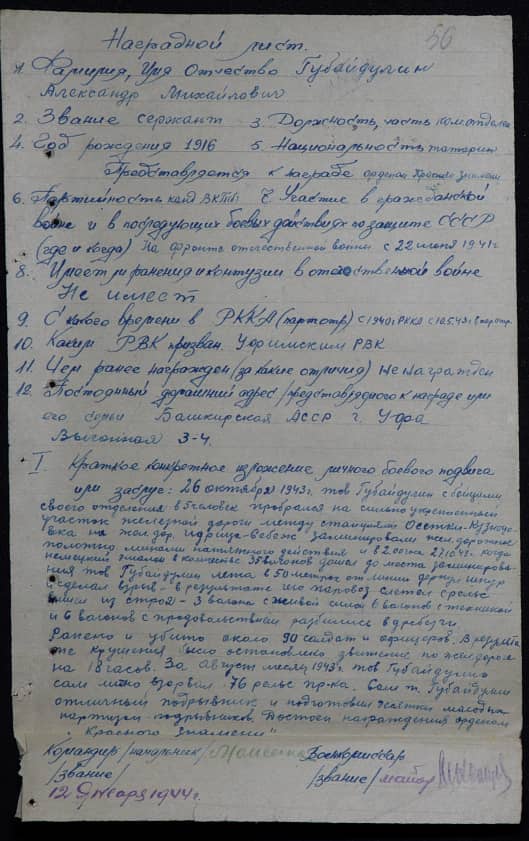 56
Наградной лист.
1. Фамилия, Имя Отчество Губайдулин
Александр Михайлович
2. Звание сержант 3. Должность, часть ком.отделен
4. Год рождения 1916 5. Национальность татарин
Представляется к награде орденом Красного знамени
6. Партийность канд ВКП(б) 7. Участие в гражданской
войне и в последующих боевых действиях по защите СССР
(где и когда) На фронте отечественной войны с 22 июня 1941г
8. Имеет ли ранения и контузии в отечественной войне
Не имеет
9. С какого времени в РККА (партотр) с 1940г РККА с 10.5.43г в партотр.
10. Каким РВК призван Уфимским РВК
11. Чем ранее награжден (за какие отличия) Не награжден
12. Постоянный домашний адрес /представляемого к награде или
его семьи Башкирская АССР г. Уфа
Выгонная 3-4.
I. Краткое конкретное изложение личного боевого подвига
или заслуг: 26 октября 1943г. тов Губайдулин с бойцами
своего отделения в 5 человек пробрался на сильно укрепленный
участок железной дороги между станцией
на жел.дор. Идрица-Себеж заминировали жел.дорожное
полотно минами натяжного действия и в 2 00 27.10.43г. когда
немецкий эшелон в количестве 35 вагонов дошел до места заминирова-
ния тов Губайдулин лежа в 50 метрах от линии дернул шнур
и сделал взрыв - в результате чего паровоз слетел с рельс
вышли из строя - 3 вагона с живой силой 6 вагонов с техникой
и 6 вагонов с продовольствием разбились вдребезги.
Ранено и убито около 90 солдат и офицеров. В результа-
те крушения было остановлено движение по жел.дороге
на 18 часов. За август месяц 1943г тов Губайдулин
сам лично взорвал 76 рельс пр-ка. Сам т. Губайдулин
отличный подрывник и подготовил молодых
партизан-подрывников. Достоин награждения орденом
"Красного Знамени"
Командир /начальник/ Военкомиссар
/звание/ /звание/ майор
12 Января 1944г.